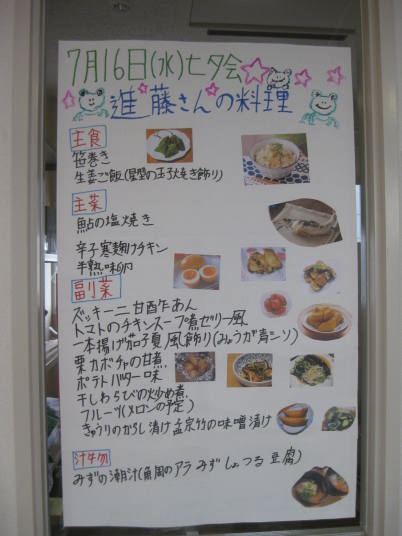 7月16日(水)七夕会
進藤さんの料理
主食
笹巻き
生姜ご飯(星型の玉子焼き飾り)
主菜
鮎の塩焼き
辛子寒麹漬けチキン
半熟味卵
副菜
ズッキーニ甘酢あん
トマトのチキンスープ煮ゼリー風
一本揚げ茄子夏風飾り(みょうが青シソ)
栗カボチャの甘煮
ポテトバター味
干しわらびの炒め煮
フルーツ(メロンの予定)
きゅうりのからし漬け孟宗竹の味噌漬け
汁物
みずの潮汁(魚のアラ みず しょつる 豆腐)